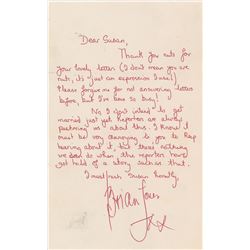 Dear Susan,
Thank you ever so for
your lovely letter (I don't mean you are
nuts, it's just an expression I use!)
Please forgive me for not answering letters
before, but I've been so busy!
No I don't intend to get
married just yet. Reporters are always
pestering us about this. I know it
must be very annoying to you to keep
hearing about it, but there's nothing
we can do when the reporters have
got hold of a story such as that.
I must rush Susan honestly
Brian Jones
xx